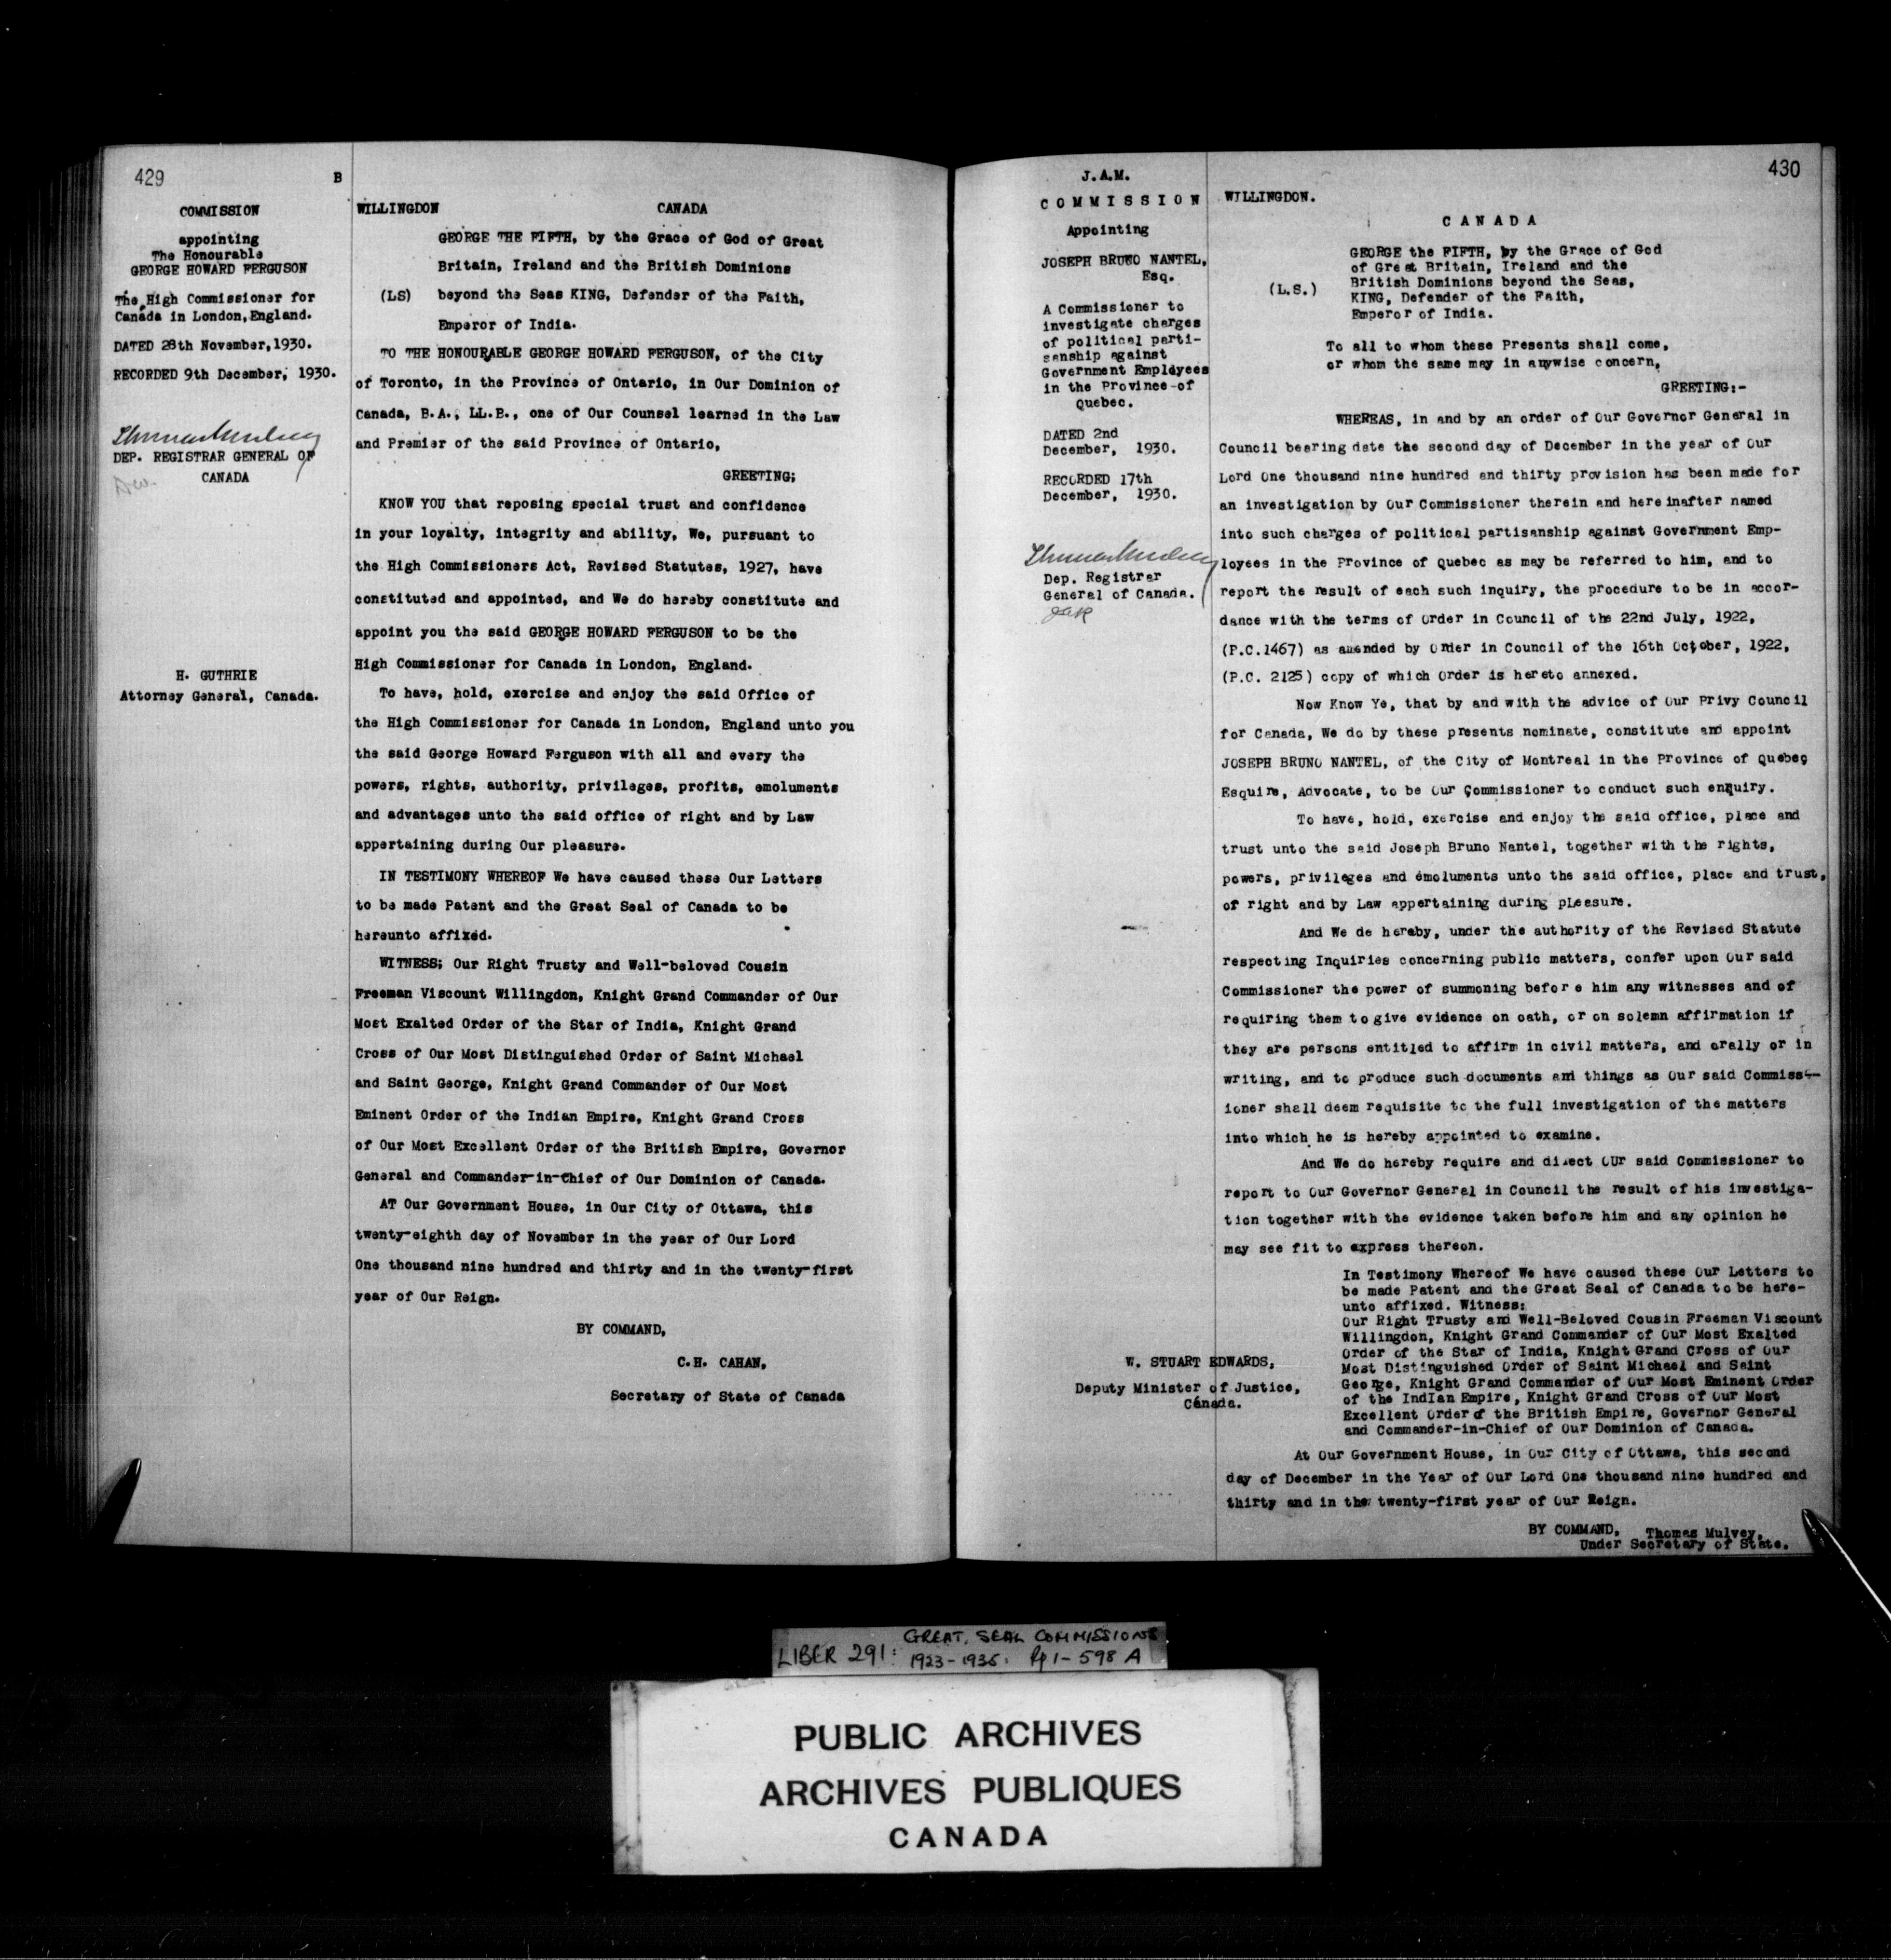 429
B
COMMISSION
appointing
The Honourable
GEORGE HOWARD FERGUSON
The High Commissioner for
Canada in London, England.
DATED 28th November, 1930.
RECORDED 9th December, 1930.
DEP. REGISTRAR GENERAL OF
CANADA
H. GUTHRIE
Attorney General, Canada.
WILLINGDON CANADA
GEORGE THE FIFTH, by the Grace of God of Great
Britain, Ireland and the British Dominions
(LS) beyond the Seas KING, Defender of the Faith,
Emperor of India.
TO THE HONOURABLE GEORGE HOWARD FERGUSON, of the City
of Toronto, in the Province of Ontario, in Our Dominion of
Canada, B.A., LL.B., one of Our Counsel learned in the Law
and Premier of the said Province of Ontario,
GREETING;
KNOW YOU that reposing special trust and confidence
in your loyalty, integrity and ability, We, pursuant to
the High Commissioners Act, Revised Statutes, 1927, have
constituted and appointed, and We do hereby constitute and
appoint you the said GEORGE HOWARD FERGUSON to be the
High Commissioner for Canada in London, England.
To have, hold, exercise and enjoy the said Office of
the High Commissioner for Canada in London, England unto you
the said George Howard Ferguson with all and every the
powers, rights, authority, privileges, profits, emoluments
and advantages unto the said office of right and by Law
appertaining during Our pleasure.
IN TESTIMONY WHEREOF We have caused these Our Letters
to be made Patent and the Great Seal of Canada to be
hereunto affixed.
WITNESS; Our Right Trusty and Well-beloved Cousin
Freeman Viscount Willingdon, Knight Grand Commander of Our
Most Exalted Order of the Star of India, Knight Grand
Cross of Our Most Distinguished Order of Saint Michael
and Saint George, Knight Grand Commander of Our Most
Eminent Order of the Indian Empire, Knight Grand Cross
of Our Most Excellent Order of the British Empire, Governor
General and Commander-in-Chief of Our Dominion of Canada.
AT Our Government House, in Our City of Ottawa, this
twenty-eighth day of November in the year of Our Lord
One thousand nine hundred and thirty and in the twenty-first
year of Our Reign.
BY COMMAND,
C.H. CAHAN,
Secretary of State of Canada
430
J.A.M.
COMMISSION
Appointing
JOSEPH BRUNO NANTEL,
Esq.
A Commissioner to
investigate charges
of political parti-
sanship against
Government Employees
in the Province of
Quebec.
DATED 2nd
December, 1930.
RECORDED 17th
December, 1930.
Dep. Registrar
General of Canada.
W. STUART EDWARDS,
Deputy Minister of Justice,
Canada.
WILLINGDON.
CANADA
GEORGE the FIFTH, by the Grace of God
of Great Britain, Ireland and the
British Dominions beyond the Seas,
(L.S.) KING, Defender of the Faith,
Emperor of India.
To all to whom these Presents shall come,
or whom the same may in anywise concern,
GREETING:-
WHEREAS, in and by an order of Our Governor General in
Council bearing date the second day of December in the year of Our
Lord One thousand nine hundred and thirty provision has been made for
an investigation by Our Commissioner therein and hereinafter named
into such charges of political partisanship against Government Emp-
loyees in the Province of Quebec as may be referred to him, and to
report the result of each such inquiry, the procedure to be in accor-
dance with the terms of Order in Council of the 22nd July, 1922,
(P.C.1467) as amended by Order in Council of the 16th October, 1922,
(P.C. 2125) copy of which Order is hereto annexed.
Now Know Ye, that by and with the advice of Our Privy Council
for Canada, We do by these presents nominate, constitute and appoint
JOSEPH BRUNO NANTEL, of the City of Montreal in the Province of Quebec
Esquire, Advocate, to be Our Commissioner to conduct such enquiry.
To have, hold, exercise and enjoy the said office, place and
trust unto the said Joseph Bruno Nantel, together with the rights,
powers, privileges and emoluments unto the said office, place and trust,
of right and by Law appertaining during pleasure.
And We de hereby, under the authority of the Revised Statute
respecting Inquiries concerning public matters, confer upon Our said
Commissioner the power of summoning before him any witnesses and of
requiring them to give evidence on oath, or on solemn affirmation if
they are persons entitled to affirm in civil matters, and orally or in
writing, and to produce such documents and things as Our said Commiss-
ioner shall deem requisite to the full investigation of the matters
into which he is hereby appointed to examine.
And We do hereby require and direct OUr said Commissioner to
report to Our Governor General in Council the result of his investiga-
tion together with the evidence taken before him and any opinion he
may see fit to express thereon.
In Testimony Whereof We have caused these Our Letters to
be made Patent and the Great Seal of Canada to be here-
unto affixed. Witness:
Our Right Trusty and Well-Beloved Cousin Freeman Viscount
Willingdon, Knight Grand Commander of Our Most Exalted
Order of the Star of India, Knight Grand Cross of Our
Most Distinguished Order of Saint Michael and Saint
George, Knight Grand Commander of Our Most Eminent Order
of the IndIan Empire, Knight Grand Cross of Our Most
Excellent Order of the British Empire, Governor General
and Commander-in-Chief of Our Dominion of Canada.
At Our Government House, in Our City of Ottawa, this second
day of December in the Year of Our Lord One thousand nine hundred and
thirty and in the twenty-first year of Our Reign.
BY COMMAND, Thomas Mulvey,
Under Secretary of State.
LIBER 291: GREAT SEAL COMMISSIONS
1923-1935: Pp 1-598 A
PUBLIC ARCHIVES
ARCHIVES PUBLIQUES
CANADA